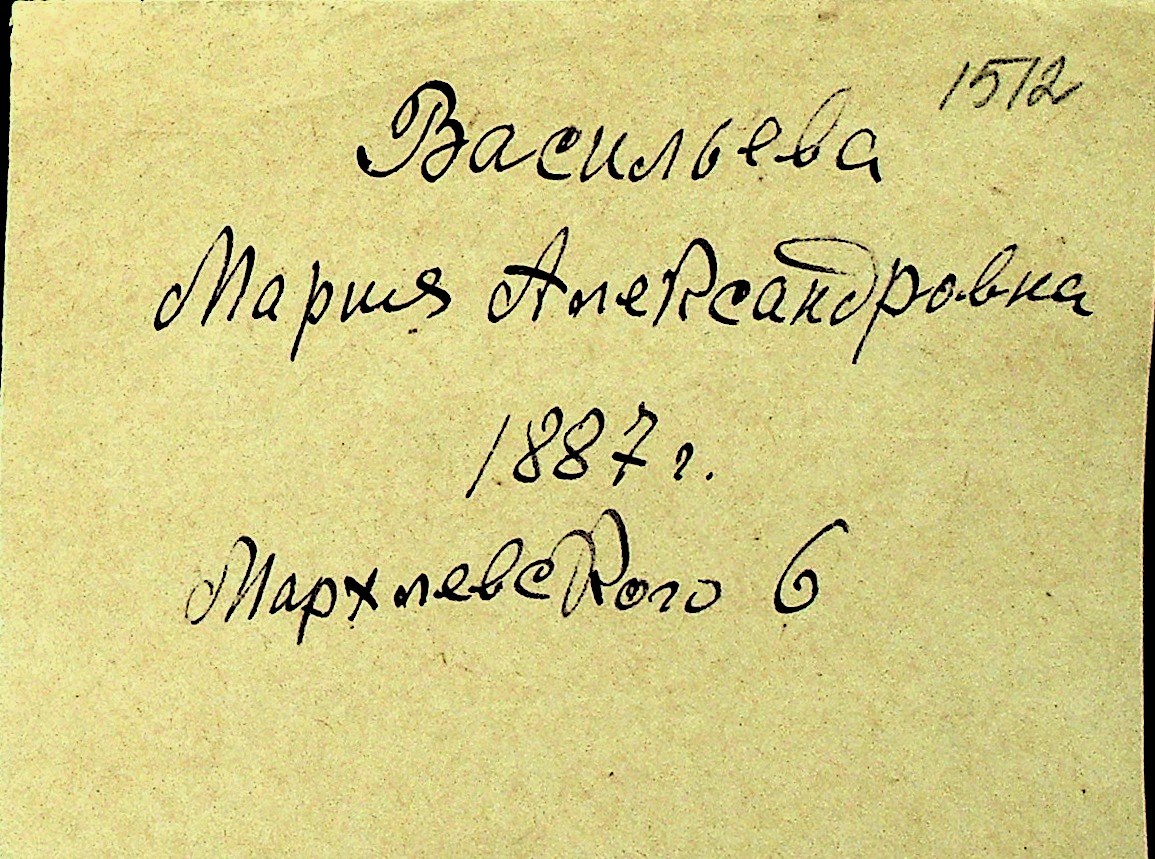 1512
Васильева
Мария Александровна
1887 г.
Мархлевского 6